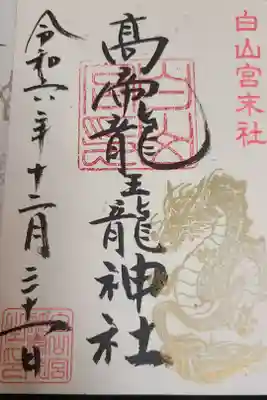 白山宮末社
髙龗王龍神社
令和六年十二月三十一日